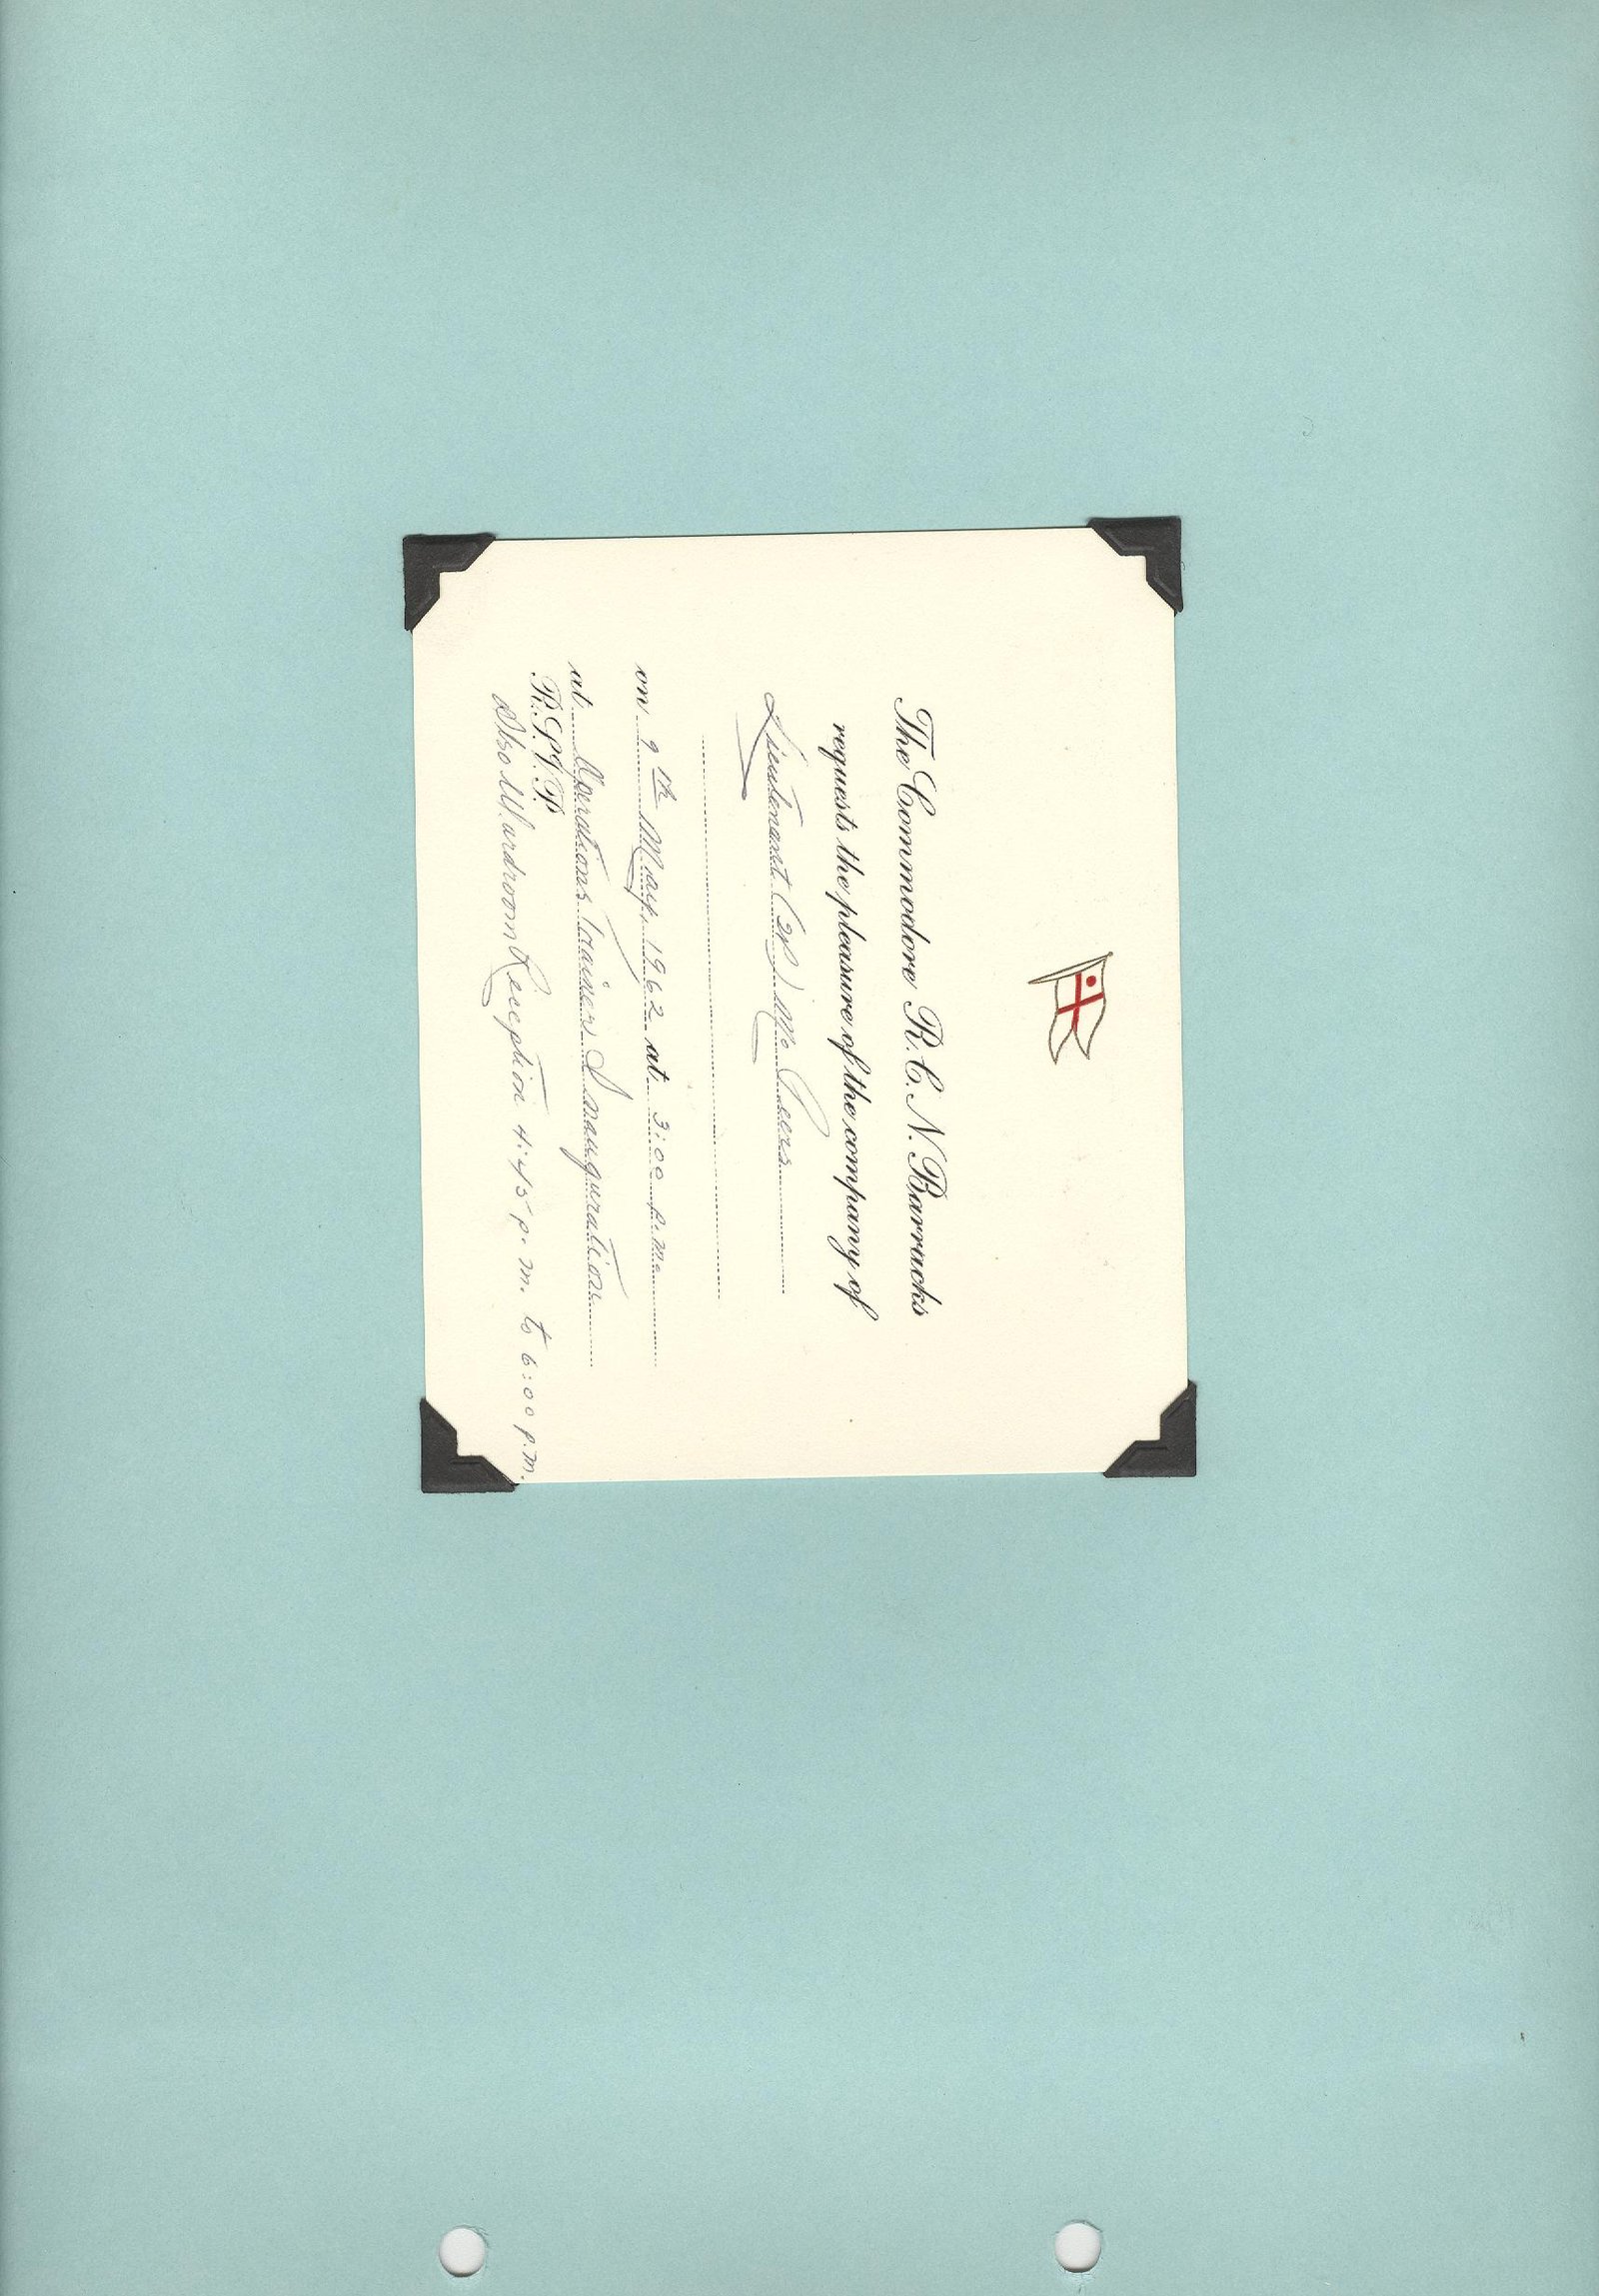 The Commodore R.C.N. Barracks
requests the pleasure of the company of
Lieutenant (SP) M. Peers
on 9th May, 1962 at 3:00 p.m.
at Operations Trainer Inauguration
R.S.V.P.
Also Wardroom Reception 4:45 p.m. to 6:00 p.m.